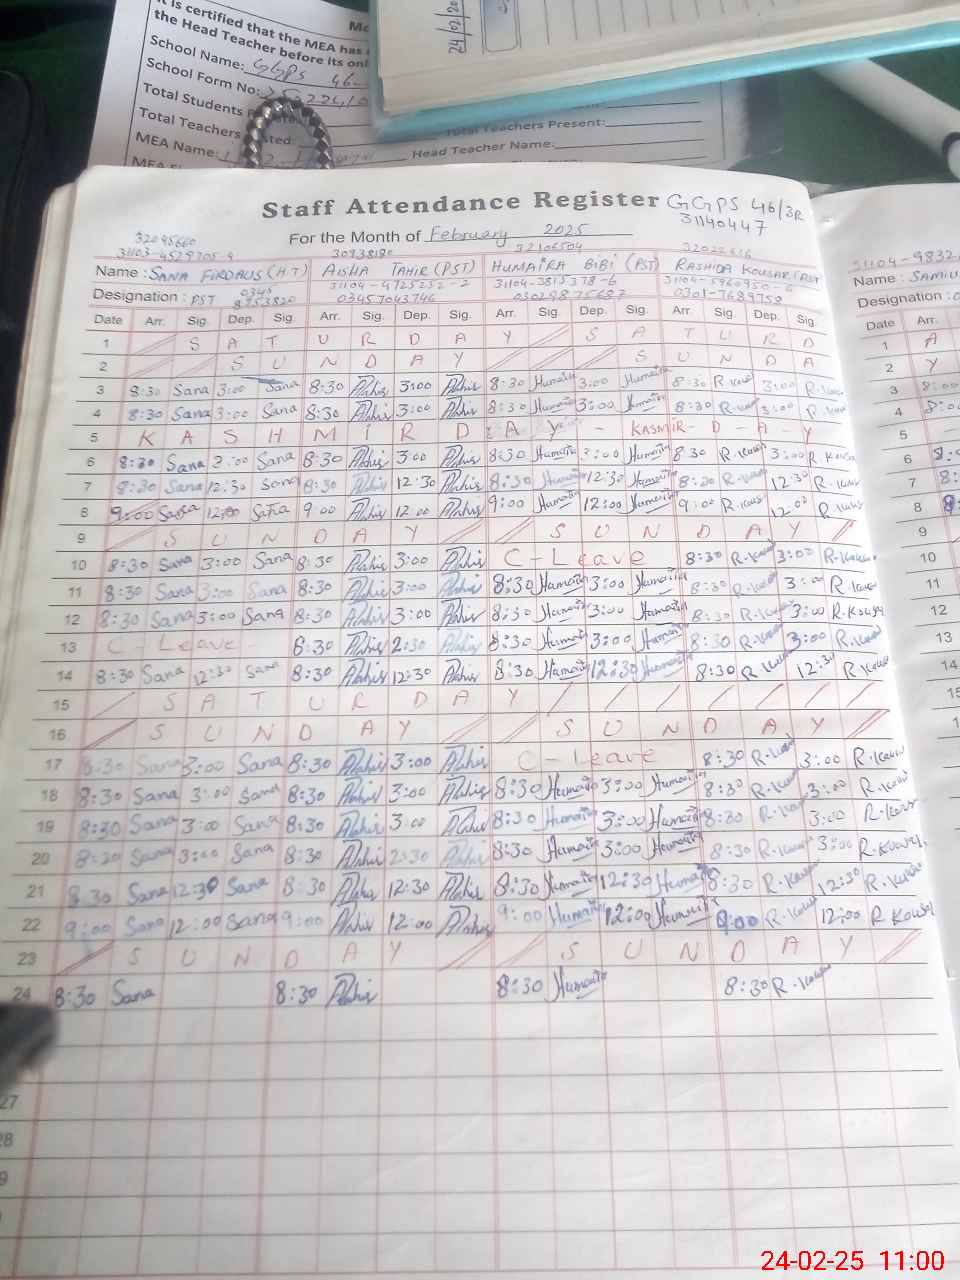 It is certified that the MEA has
the Head Teacher before its
School Name: GGPS 46
School Form No:
Total Students
Total Teachers
MEA Name:
Total Teachers Present:
Head Teacher Name:
24/02/20
Staff Attendance Register GGPS 46/3R
31140447
For the Month of February 2025
32045660 30938180 32106504
31103-4529705-4
Name : SANA FIRDAUS (H.T) AISHA TAHIR (PST) HUMAIRA BIBI (PST) RASHIDA KOUSAR (PST
31104-4725252-2 31104-3815378-6 31104-5960950-6
Designation : PST 0345 8753820 03457043746 03029875687 0301-7689758
Date Arr. Sig. Dep. Sig. Arr. Sig. Dep. Sig. Arr. Sig. Dep. Sig. Arr. Sig. Dep. Sig.
1 S A T U R D A Y S A T U R D
2 S U N D A Y S U N D A
3 8:30 Sana 3:00 Sana 8:30 3:00 8:30 Humaira 3:00 Humaira 8:30 R.Kousar 3:00 R.Kousar
4 8:30 Sana 3:00 Sana 8:30 3:00 8:30 Humaira 3:00 Humaira 8:30 R.Kousar 3:00 R.Kousar
5 K A S H M I R D A Y - KASMIR - D - A - Y
6 8:30 Sana 3:00 Sana 8:30 3:00 8:30 Humaira 3:00 Humaira 8:30 R.Kousar 3:00 R Kousar
7 8:30 Sana 12:30 Sana 8:30 12:30 8:30 Humaira 12:30 Humaira 8:30 R.Kousar 12:30 R.Kousar
8 9:00 Sana 12:00 Sana 9:00 12:00 9:00 Humaira 12:00 Humaira 9:00 R.Kousar 12:00 R Kousar
9 S U N D A Y S U N D A Y
10 8:30 Sana 3:00 Sana 8:30 3:00 C-Leave 8:30 R.Kousar 3:00 R.Kousar
11 8:30 Sana 3:00 Sana 8:30 3:00 8:30 Humaira 3:00 Humaira 8:30 R.Kousar 3:00 R.Kousar
12 8:30 Sana 3:00 Sana 8:30 3:00 8:30 Humaira 3:00 Humaira 8:30 R.Kousar 3:00 R.Kousar
13 C-Leave 8:30 2:30 8:30 Humaira 3:00 Humaira 8:30 R.Kousar 3:00 R.Kousar
14 8:30 Sana 12:30 Sana 8:30 12:30 8:30 Humaira 12:30 Humaira 8:30 R Kousar 12:30 R Kousar
15 S A T U R D A Y
16 S U N D A Y S U N D A Y
17 8:30 Sana 3:00 Sana 8:30 3:00 C-Leave 8:30 R.Kousar 3:00 R.Kousar
18 8:30 Sana 3:00 Sana 8:30 3:00 8:30 Humaira 3:00 Humaira 8:30 R.Kousar 3:00 R.Kousar
19 8:30 Sana 3:00 Sana 8:30 3:00 8:30 Humaira 3:00 Humaira 8:30 R.Kousar 3:00 R.Kousar
20 8:30 Sana 3:00 Sana 8:30 2:30 8:30 Humaira 3:00 Humaira 8:30 R.Kousar 3:00 R.Kousar
21 8:30 Sana 12:30 Sana 8:30 12:30 8:30 Humaira 12:30 Humaira 8:30 R.Kousar 12:30 R.Kousar
22 9:00 Sana 12:00 Sana 9:00 12:00 9:00 Humaira 12:00 Humaira 9:00 R.Kousar 12:00 R Kousar
23 S U N D A Y S U N D A Y
24 8:30 Sana 8:30 8:30 Humaira 8:30 R.Kousar
27
28
31104-9832
Name : SAMIU
Designation :
Date Arr.
1 A
2 Y
3 8:00
4 8:00
5 -
6
7 8:
8
9
10
11
12
13
14
15
24-02-25 11:00